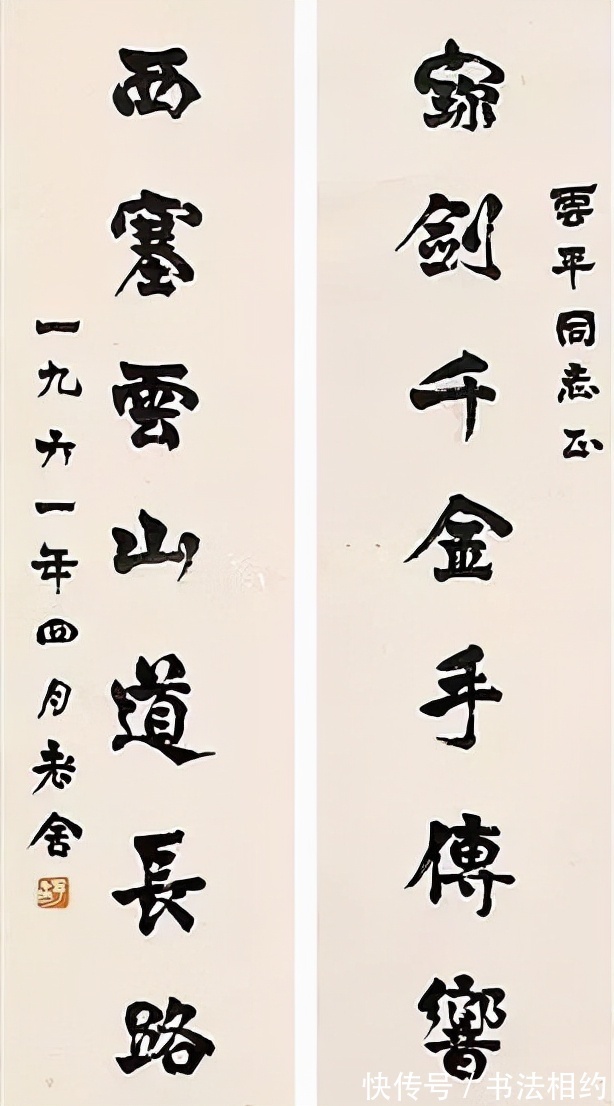 雲平同志正
寶劍千金手傳響
西塞雲山道長路
一九六一年四月老舍
快传号 / 书法相约